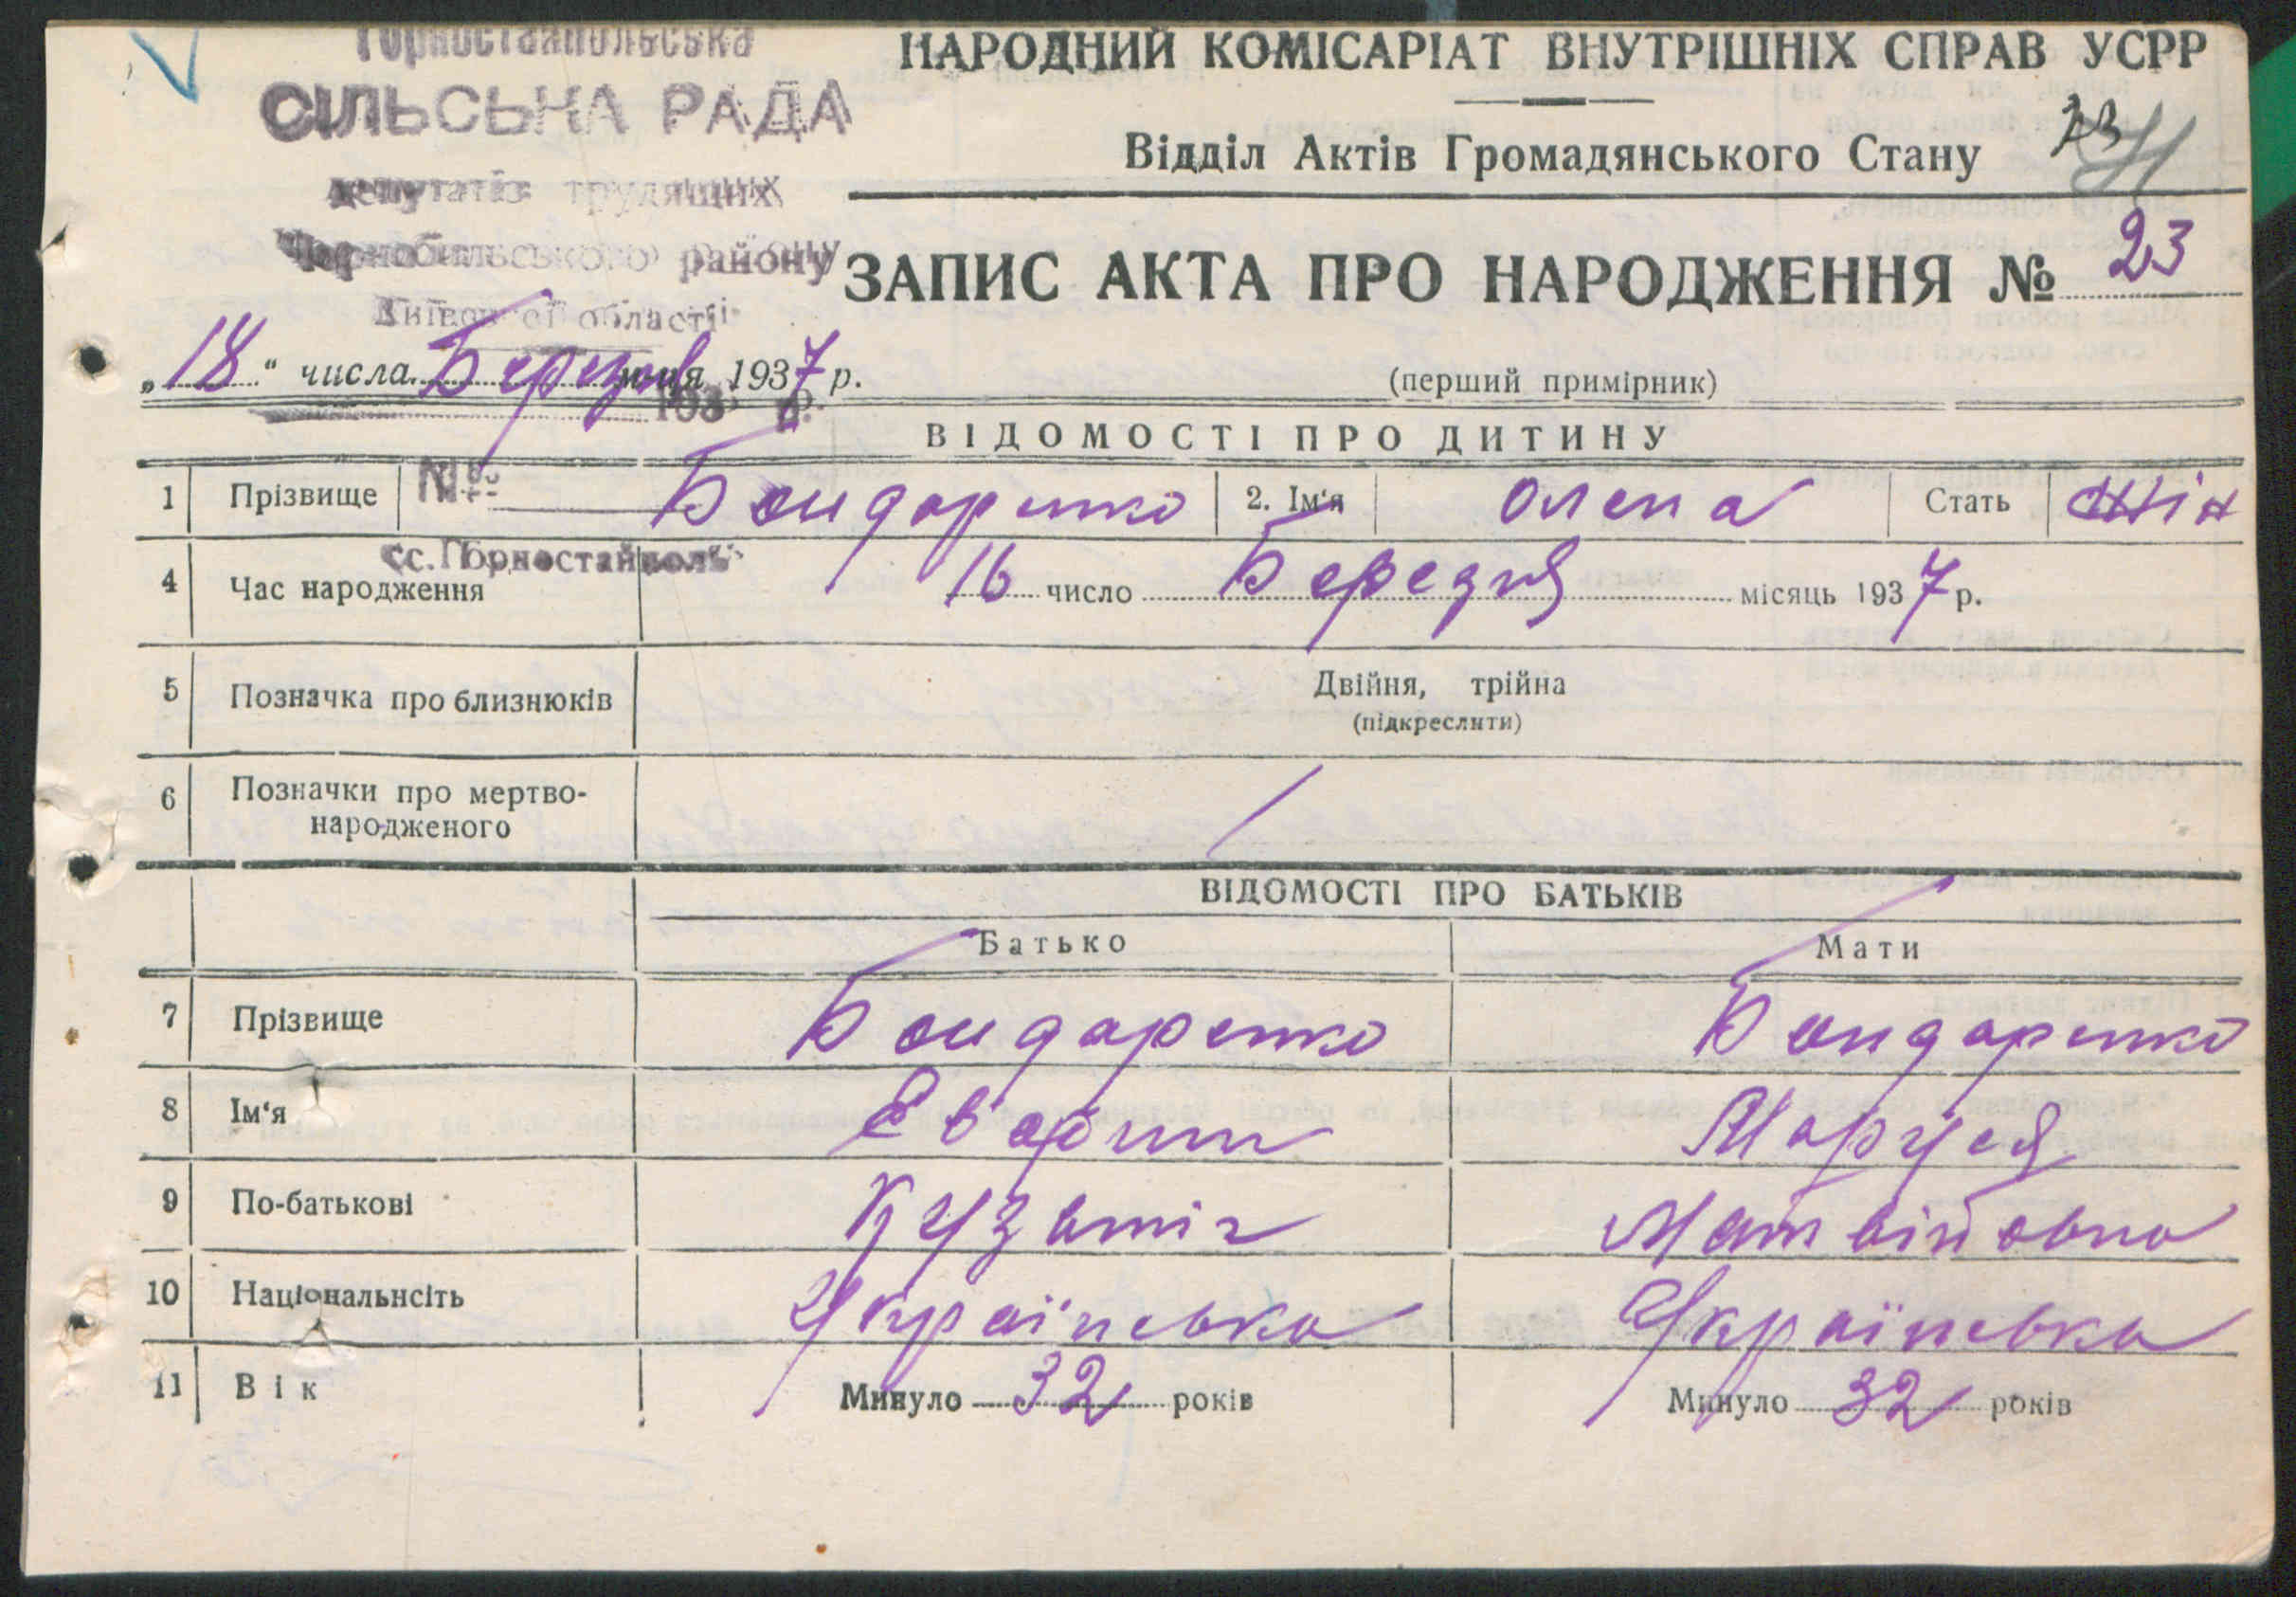 Горностайпільська
СІЛЬСЬКА РАДА
депутатів трудящих
Чорнобильського району
Київської області
НАРОДНИЙ КОМІСАРІАТ ВНУТРІШНІХ СПРАВ УСРР
Відділ Актів Громадянського Стану
ЗАПИС АКТА ПРО НАРОДЖЕННЯ № 23
„18" числа Березня м-ця 1937 р.
193 р.
(перший примірник)
ВІДОМОСТІ ПРО ДИТИНУ
1 Прізвище № Бондаренко 2. Ім'я Олена Стать Жін
с. Горностайпіль
4 Час народження 16 число Березня місяць 1937 р.
5 Позначка про близнюків Двійня, трійна
(підкреслити)
6 Позначки про мертво-
народженого
ВІДОМОСТІ ПРО БАТЬКІВ
Батько Мати
7 Прізвище Бондаренко Бондаренко
8 Ім'я Маруся
9 По-батькові Матвійовна
10 Національнсіть Українська Українська
11 Вік Минуло 32 років Минуло 32 років